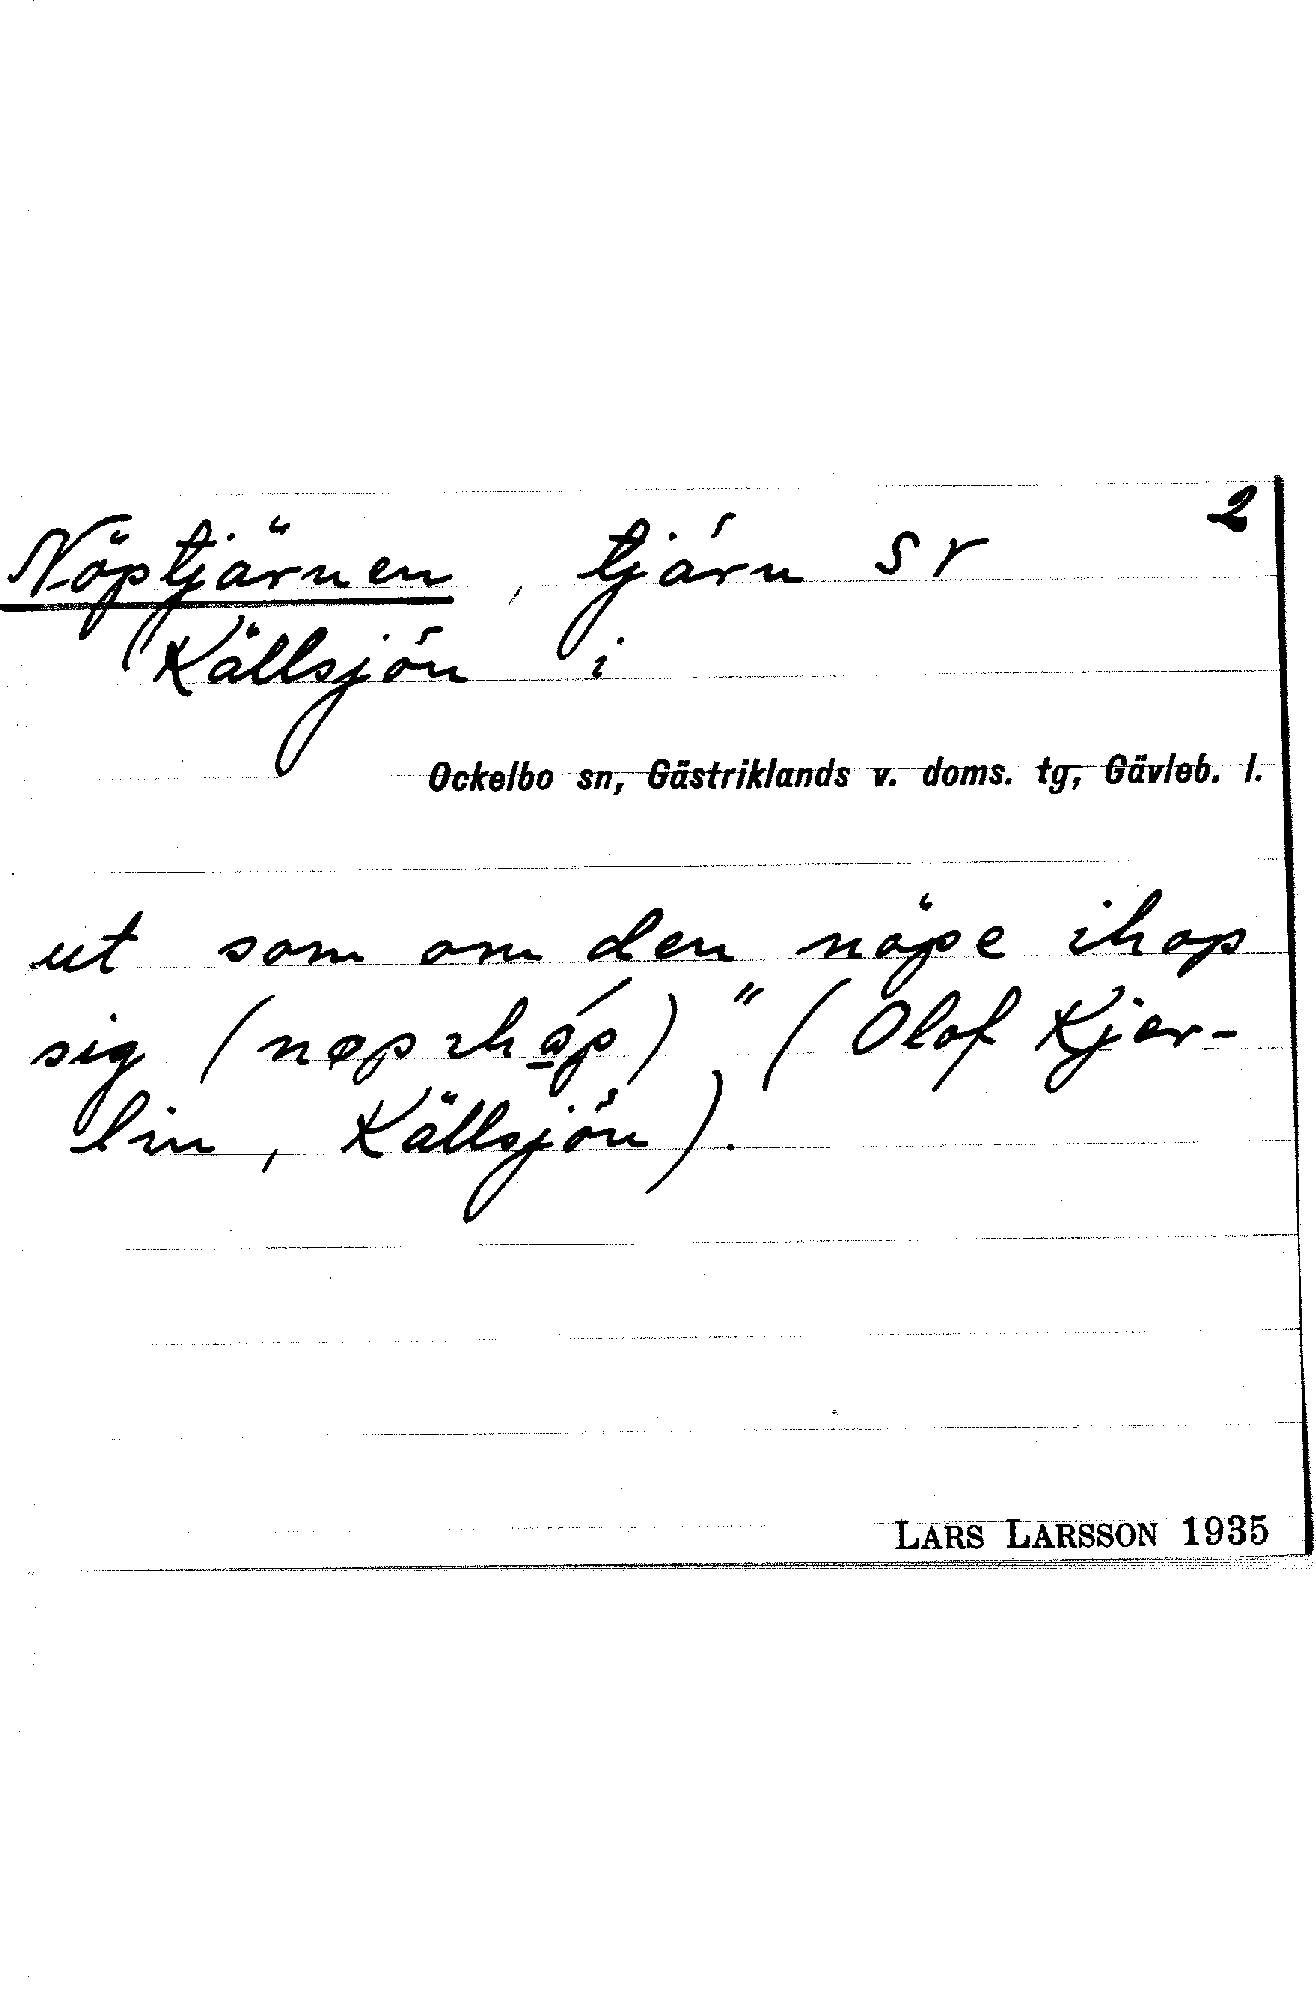 2
Nöptjärnen, tjärn SV
Källsjön i
Ockelbo sn, Gästriklands v. doms. tg, Gävleb. l.
ut som om den nöpe ihop
sig ( )" (Olof Kjer-
lin, Källsjön).
LARS LARSSON 1935